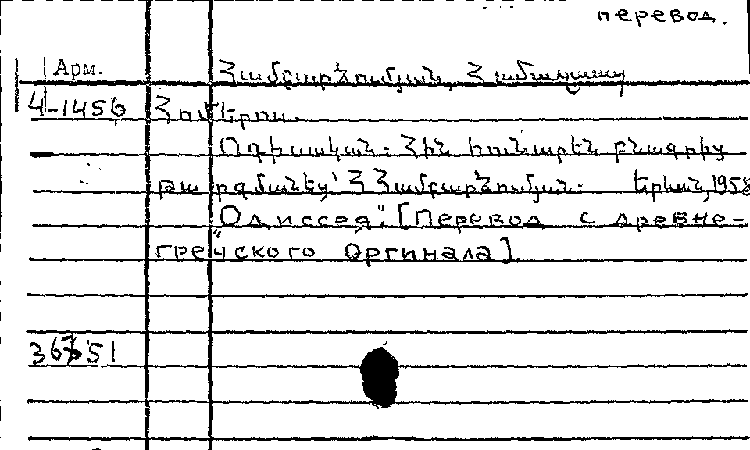 перевод.
Арм. Համբարձումյան, Համազասպ
4-1456 Հոմերոս.
Ոդիսական: Հին հունարեն բնագրից
թարգմանեց՝ Հ Համբարձումյան: Երևան, 1958
"Одиссея". [Перевод с древне-
грейского Оргинала]
36751